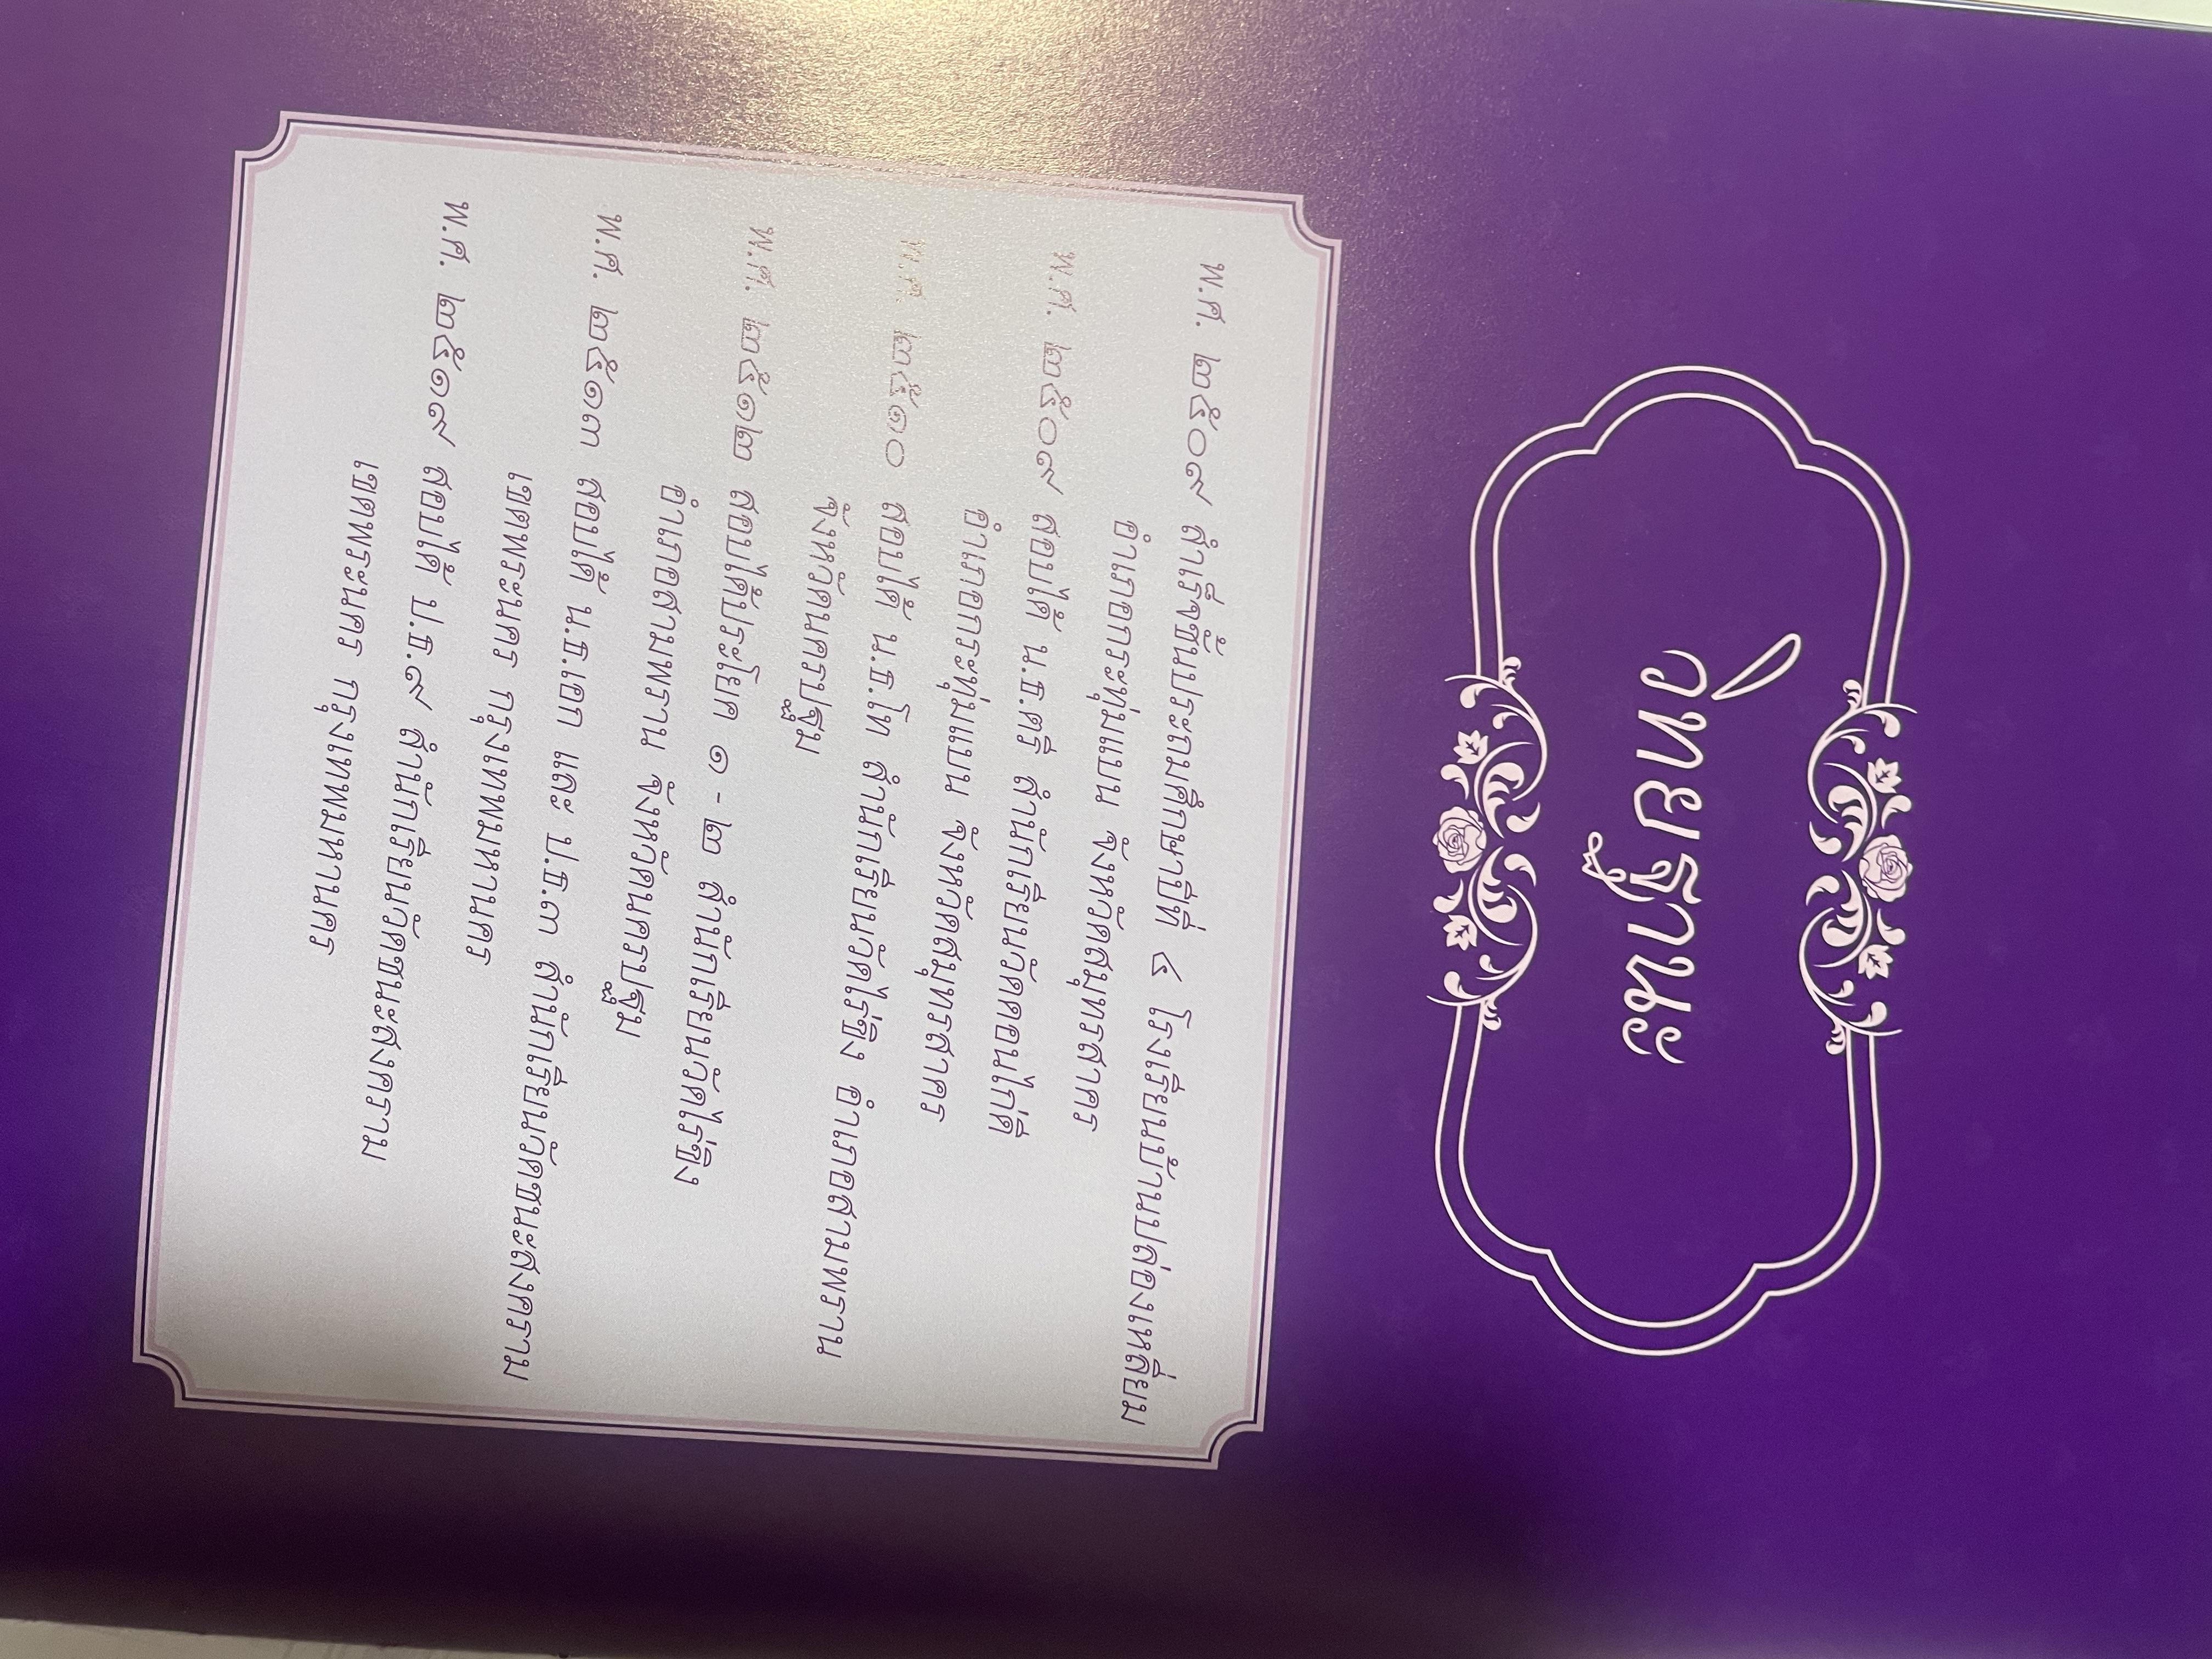 วิทยฐานะ
พ.ศ. ๒๕๐๙ สำเร็จชั้นประถมศึกษาปีที่ ๔ โรงเรียนบ้านปล่องเหลี่ยม
อำเภอกระทุ่มแบน จังหวัดสมุทรสาคร
พ.ศ. ๒๕๐๙ สอบได้ น.ธ.ตรี สำนักเรียนวัดดอนไก่ดี
อำเภอกระทุ่มแบน จังหวัดสมุทรสาคร
พ.ศ. ๒๕๑๐ สอบได้ น.ธ.โท สำนักเรียนวัดไร่ขิง อำเภอสามพราน
จังหวัดนครปฐม
พ.ศ. ๒๕๑๒ สอบได้ประโยค ๑ - ๒ สำนักเรียนวัดไร่ขิง
อำเภอสามพราน จังหวัดนครปฐม
พ.ศ. ๒๕๑๓ สอบได้ น.ธ.เอก และ ป.ธ.๓ สำนักเรียนวัดชนะสงคราม
เขตพระนคร กรุงเทพมหานคร
พ.ศ. ๒๕๑๙ สอบได้ ป.ธ.๙ สำนักเรียนวัดชนะสงคราม
เขตพระนคร กรุงเทพมหานคร